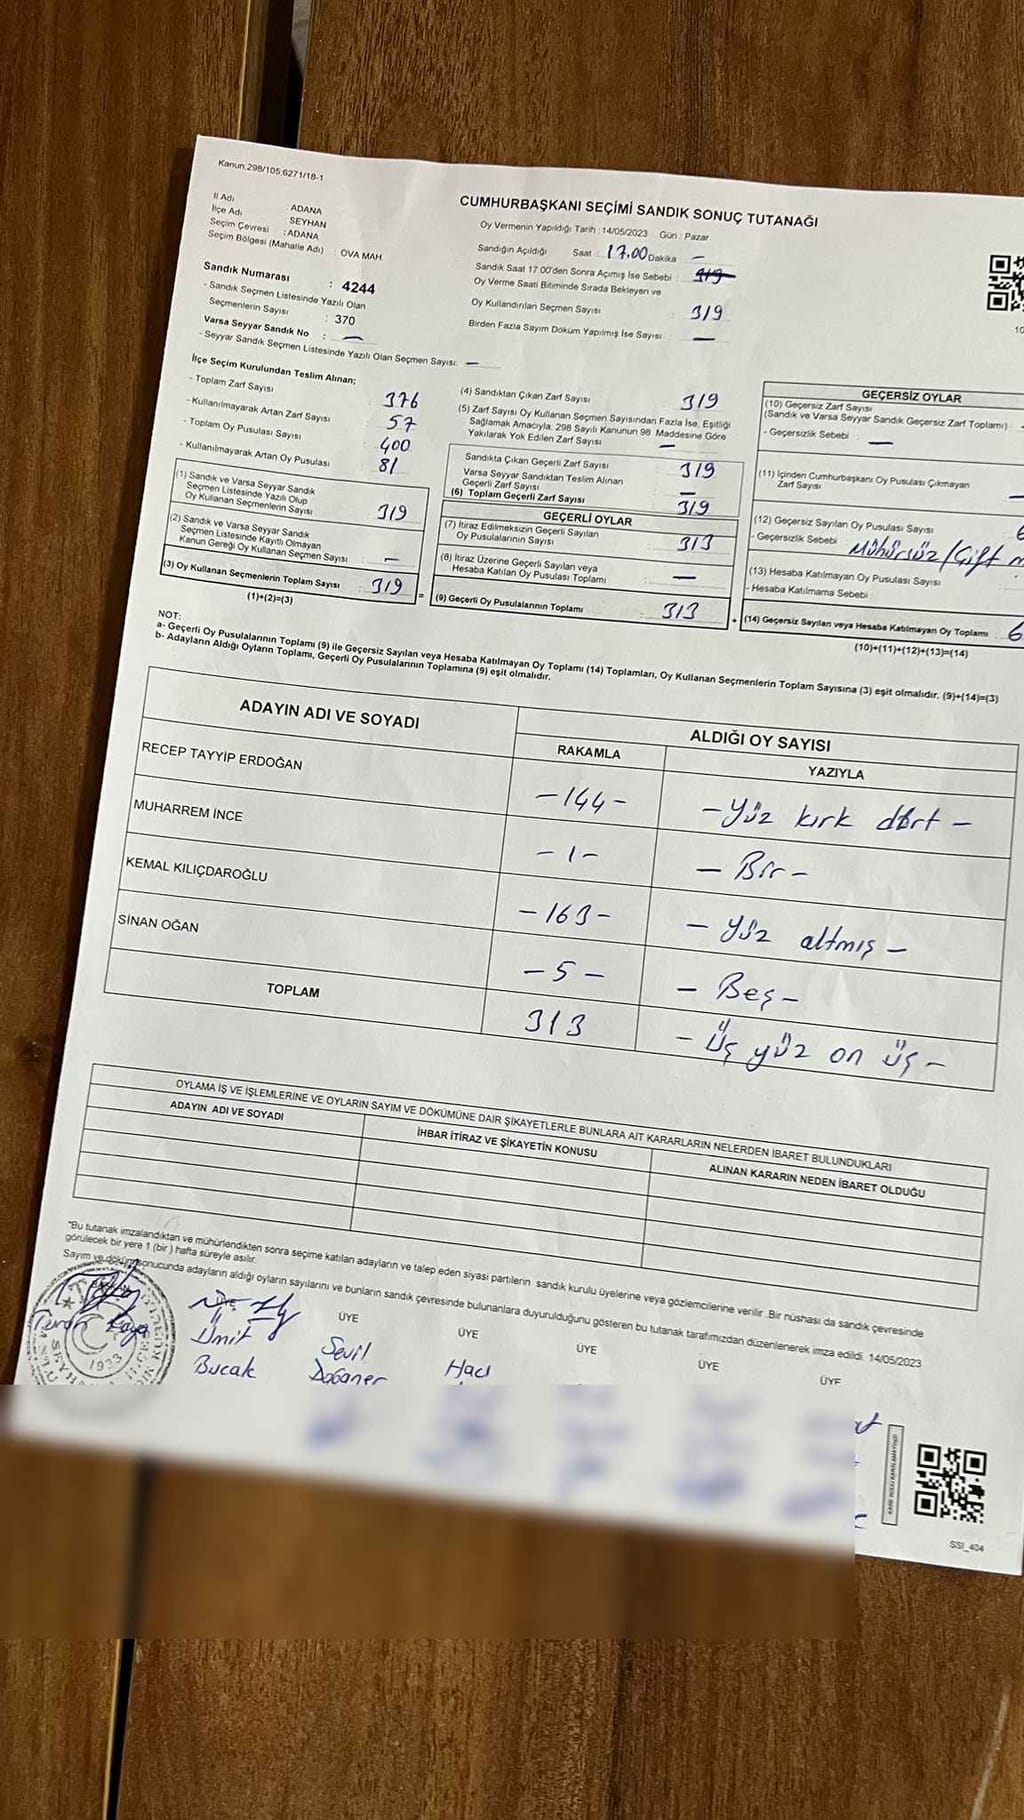 Kanun.298/105.6271/18-1
CUMHURBAŞKANI SEÇİMİ SANDIK SONUÇ TUTANAĞI
İl Adı : ADANA
İlçe Adı : SEYHAN
Seçim Çevresi : ADANA
Seçim Bölgesi (Mahalle Adı) : OVA MAH
Sandık Numarası : 4244
- Sandık Seçmen Listesinde Yazılı Olan
Seçmenlerin Sayısı : 370
Varsa Seyyar Sandık No : —
- Seyyar Sandık Seçmen Listesinde Yazılı Olan Seçmen Sayısı: —
Oy Vermenin Yapıldığı Tarih : 14/05/2023 Gün : Pazar
Sandığın Açıldığı Saat : 17.00 Dakika —
Sandık Saat 17:00'den Sonra Açımış İse Sebebi : 319
Oy Verme Saati Bitiminde Sırada Bekleyen ve
Oy Kullandırılan Seçmen Sayısı : 319
Birden Fazla Sayım Döküm Yapılmış İse Sayısı : —
İlçe Seçim Kurulundan Teslim Alınan;
- Toplam Zarf Sayısı 376
- Kullanılmayarak Artan Zarf Sayısı 57
- Toplam Oy Pusulası Sayısı 400
- Kullanılmayarak Artan Oy Pusulası 81
(1) Sandık ve Varsa Seyyar Sandık
Seçmen Listesinde Yazılı Olup
Oy Kullanan Seçmenlerin Sayısı : 319
(2) Sandık ve Varsa Seyyar Sandık
Seçmen Listesinde Kayıtlı Olmayan
Kanun Gereği Oy Kullanan Seçmen Sayısı : —
(3) Oy Kullanan Seçmenlerin Toplam Sayısı : 319
(1)+(2)=(3)
(4) Sandıktan Çıkan Zarf Sayısı 319
(5) Zarf Sayısı Oy Kullanan Seçmen Sayısından Fazla İse, Eşitliği
Sağlamak Amacıyla; 298 Sayılı Kanunun 98. Maddesine Göre
Yakılarak Yok Edilen Zarf Sayısı —
Sandıkta Çıkan Geçerli Zarf Sayısı 319
Varsa Seyyar Sandıktan Teslim Alınan
Geçerli Zarf Sayısı —
(6) Toplam Geçerli Zarf Sayısı 319
GEÇERLİ OYLAR
(7) İtiraz Edilmeksizin Geçerli Sayılan
Oy Pusulalarının Sayısı : 313
(8) İtiraz Üzerine Geçerli Sayılan veya
Hesaba Katılan Oy Pusulası Toplamı : —
= (9) Geçerli Oy Pusulalarının Toplamı : 313
GEÇERSİZ OYLAR
(10) Geçersiz Zarf Sayısı
(Sandık ve Varsa Seyyar Sandık Geçersiz Zarf Toplamı) -
- Geçersizlik Sebebi : —
(11) İçinden Cumhurbaşkanı Oy Pusulası Çıkmayan
Zarf Sayısı —
(12) Geçersiz Sayılan Oy Pusulası Sayısı
- Geçersizlik Sebebi : Mühürsüz/Çift
(13) Hesaba Katılmayan Oy Pusulası Sayısı
- Hesaba Katılmama Sebebi :
+ (14) Geçersiz Sayılan veya Hesaba Katılmayan Oy Toplamı : 6
(10)+(11)+(12)+(13)=(14)
NOT:
a- Geçerli Oy Pusulalarının Toplamı (9) ile Geçersiz Sayılan veya Hesaba Katılmayan Oy Toplamı (14) Toplamları, Oy Kullanan Seçmenlerin Toplam Sayısına (3) eşit olmalıdır. (9)+(14)=(3)
b- Adayların Aldığı Oyların Toplamı, Geçerli Oy Pusulalarının Toplamına (9) eşit olmalıdır.
ADAYIN ADI VE SOYADI ALDIĞI OY SAYISI
RAKAMLA YAZIYLA
RECEP TAYYİP ERDOĞAN -144- -Yüz kırk dört-
MUHARREM İNCE -1- -Bir-
KEMAL KILIÇDAROĞLU -163- -Yüz altmış-
SİNAN OĞAN -5- -Beş-
TOPLAM 313 -Üç yüz on üç-
OYLAMA İŞ VE İŞLEMLERİNE VE OYLARIN SAYIM VE DÖKÜMÜNE DAİR ŞİKAYETLERLE BUNLARA AİT KARARLARIN NELERDEN İBARET BULUNDUKLARI
ADAYIN ADI VE SOYADI İHBAR İTİRAZ VE ŞİKAYETİN KONUSU ALINAN KARARIN NEDEN İBARET OLDUĞU
"Bu tutanak imzalandıktan ve mühürlendikten sonra seçime katılan adayların ve talep eden siyasi partilerin sandık kurulu üyelerine veya gözlemcilerine verilir .Bir nüshası da sandık çevresinde
görülecek bir yere 1 (bir ) hafta süreyle asılır.
Sayım ve döküm sonucunda adayların aldığı oyların sayılarını ve bunların sandık çevresinde bulunanlara duyurulduğunu gösteren bu tutanak tarafımızdan düzenlenerek imza edildi. 14/05/2023
ÜYE ÜYE ÜYE ÜYE ÜYE
Kaya
Ümit Bucak
Sevil Doğaner
Hacı
1933
SSI_404